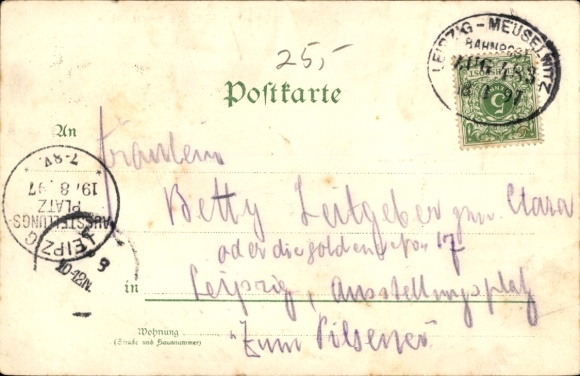 25,-
LEIPZIG - MEUSELWITZ
BAHNPOST
ZUG 483
97
5
Postkarte
An
Fräulein
Betty Leitgeber gen. Clara
oder die goldene No 17
in Leipzig, Ausstellungsplatz
Wohnung
(Straße und Hausnummer)
"Zum Pilsener"
LEIPZIG
AUSSTELLUNGS-
PLATZ
19/8.97
7-8V.
10-12N.